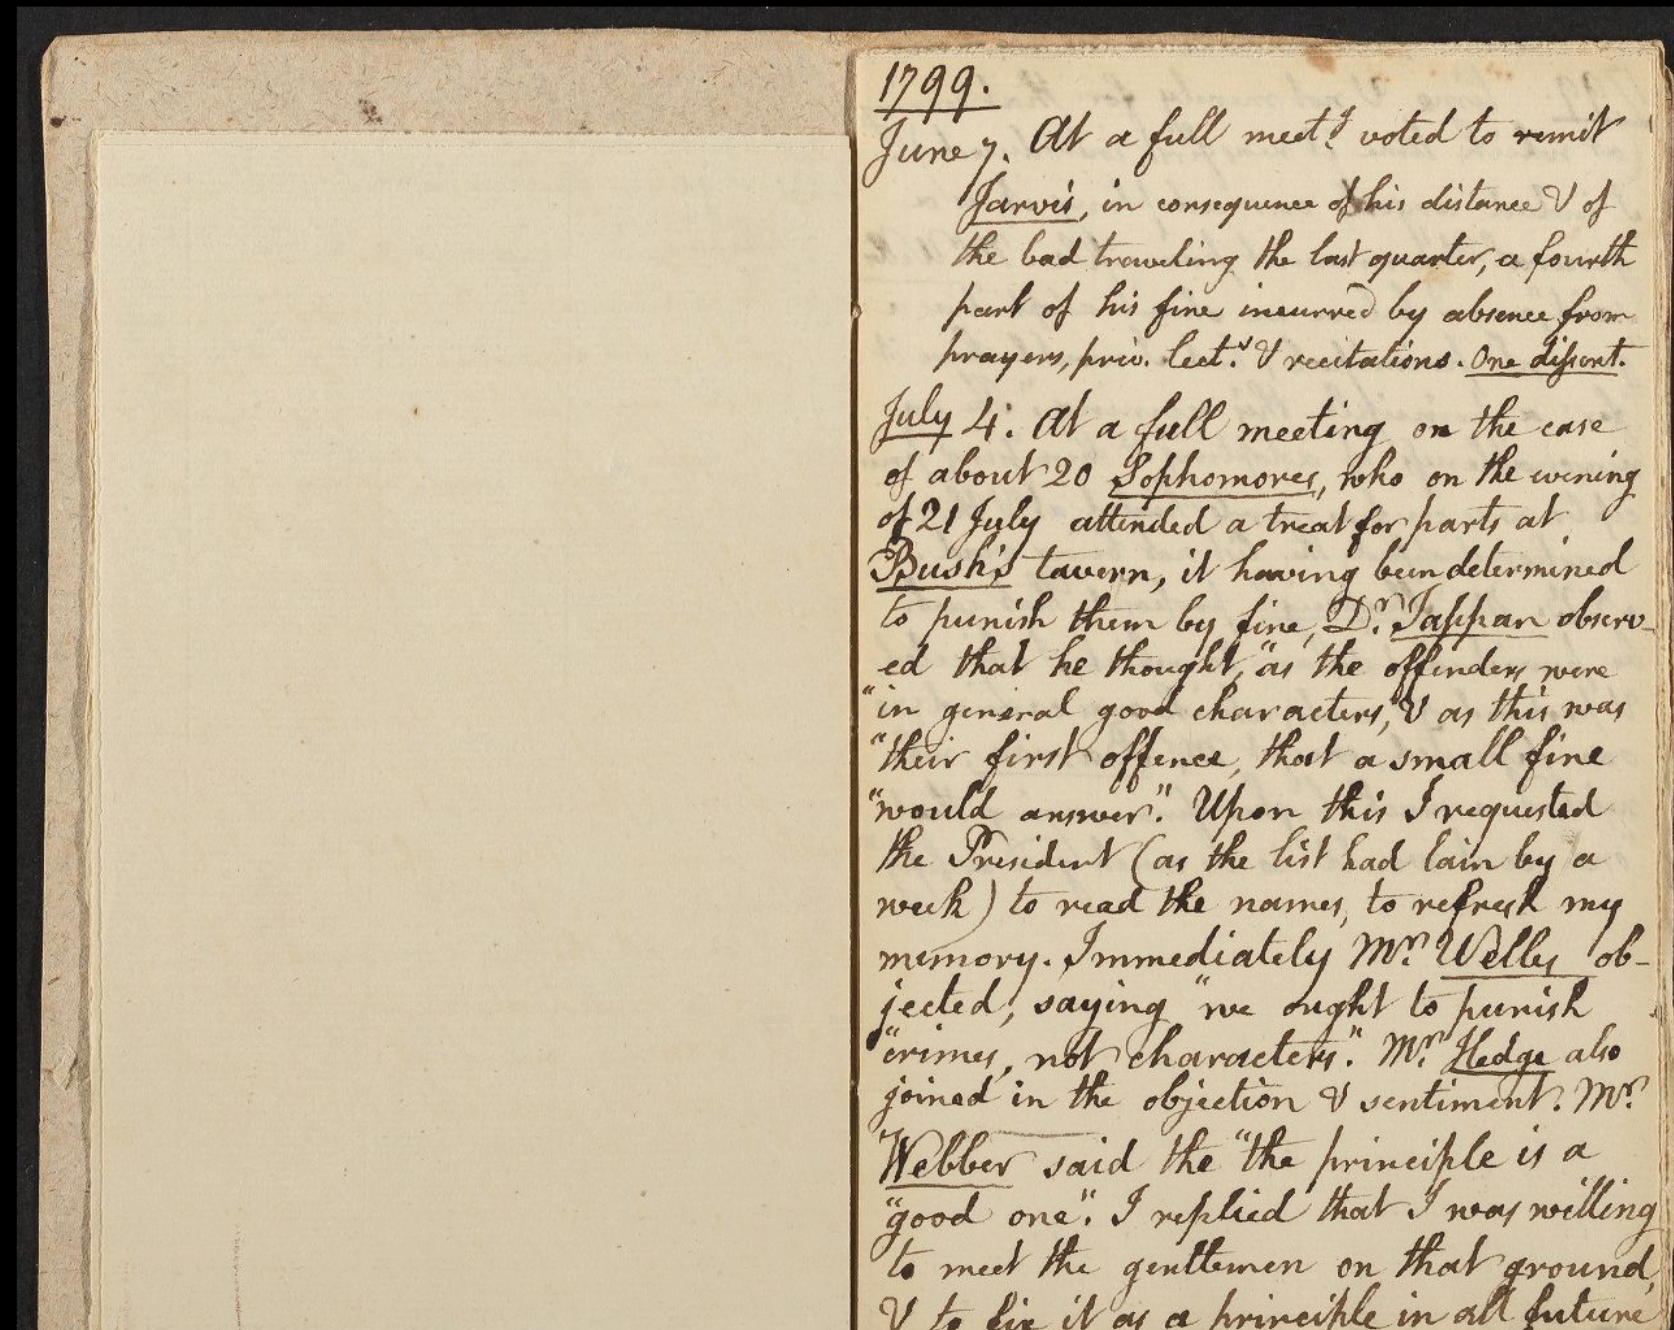 1799.
June 7. At a full meetg. voted to remit
Jarvis, in consequence of his distance & of
the bad traveling the last quarter, a fourth
part of his fine incurred by absence from
prayers, priv. lect.s & recitations. One dissent.
July 4. At a full meeting on the case
of about 20 Sophomores, who on the evening
of 21 July attended a treat for parts at
Bush's tavern, it having been determined
to punish them by fine, Dr. Tappan observ-
ed that he thought, "as the offenders were
"in general good characters, & as this was
"their first offence, that a small fine
"would answer." Upon this I requested
the President (as the list had lain by a
week) to read the names, to refresh my
memory. Immediately Mr. Wells ob-
jected, saying "we ought to punish
"crimes, not characters." Mr. Hedge also
joined in the objection & sentiment. Mr.
Webber said the "the principle is a
"good one". I replied that I was willing
to meet the gentlemen on that ground,
& to fix it as a principle in all future